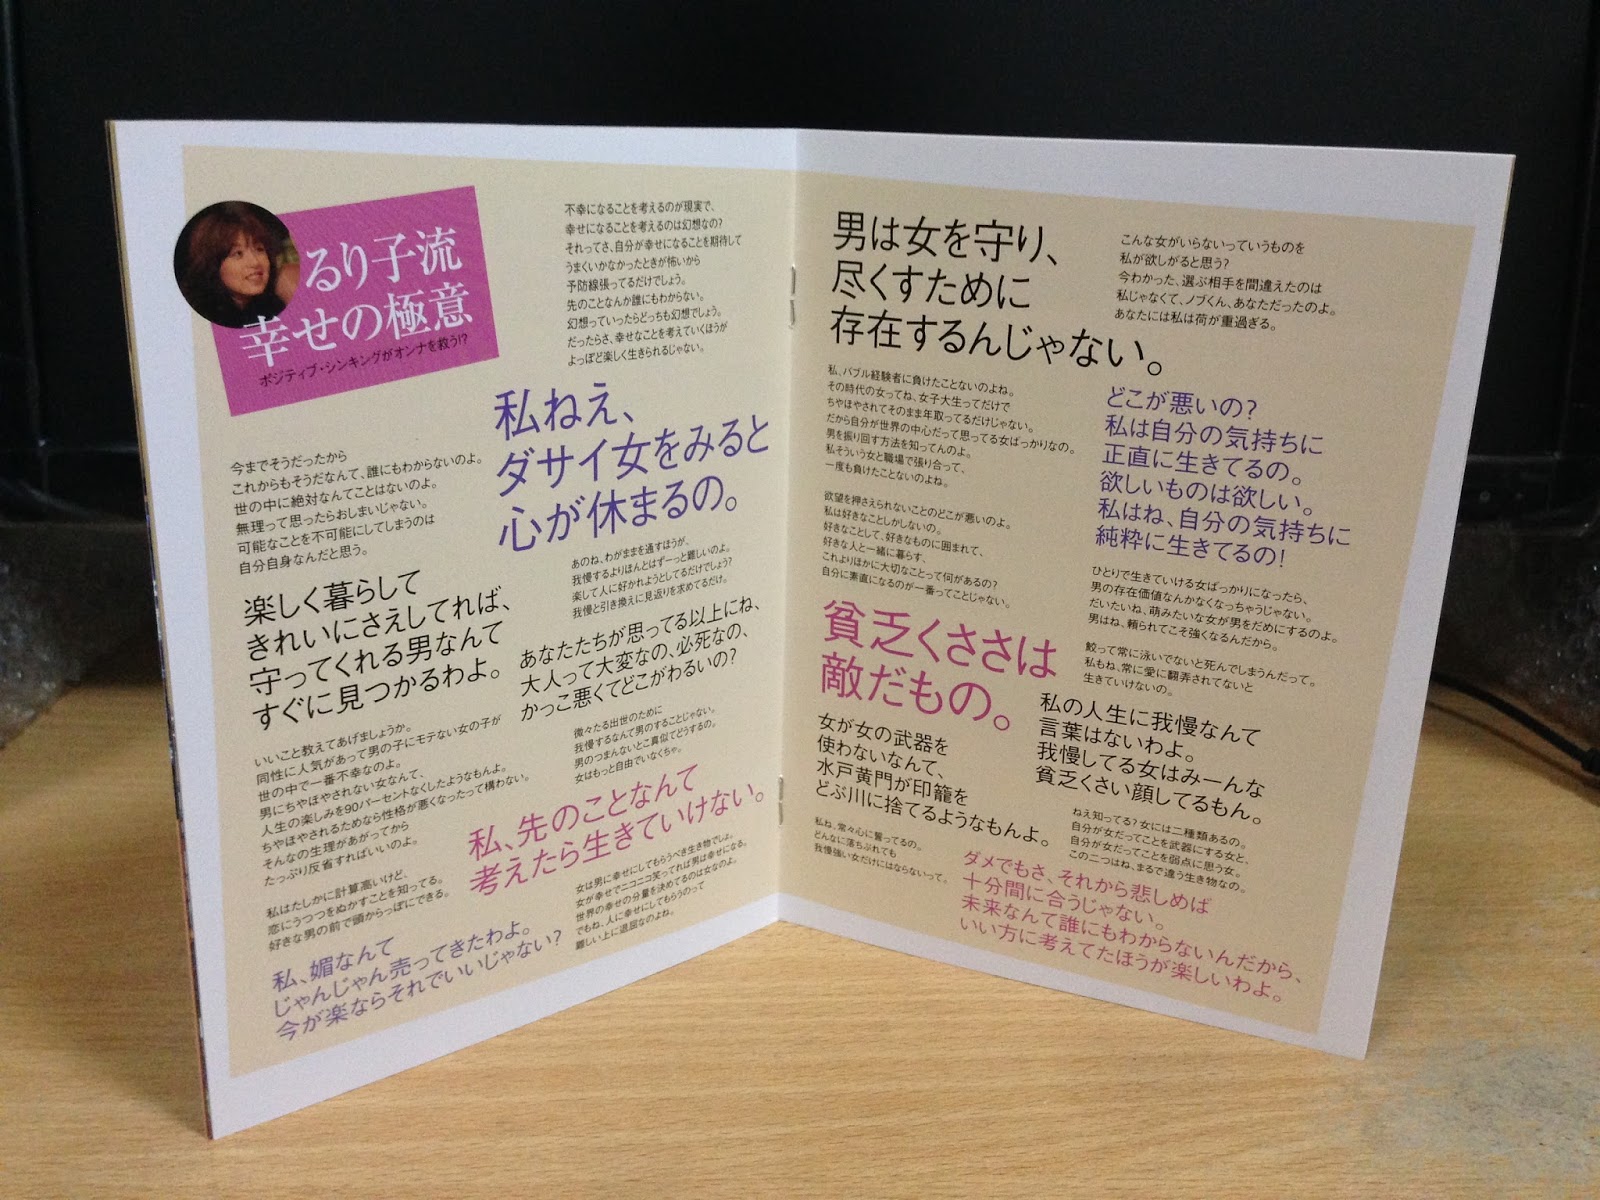 るり子流
幸せの極意
ポジティブ・シンキングがオンナを救う!?
今までそうだったから
これからもそうだなんて、誰にもわからないのよ。
世の中に絶対なんてことはないのよ。
無理って思ったらおしまいじゃない。
可能なことを不可能にしてしまうのは
自分自身なんだと思う。
楽しく暮らして
きれいにさえしてれば、
守ってくれる男なんて
すぐに見つかるわよ。
いいこと教えてあげましょうか。
同性に人気があって男の子にモテない女の子が
世の中で一番不幸なのよ。
男にちやほやされない女なんて、
人生の楽しみを90パーセントなくしたようなもんよ。
ちやほやされるためなら性格が悪くなったって構わない。
そんなの生理があがってから
たっぷり反省すればいいのよ。
私はたしかに計算高いけど、
恋にうつつをぬかすことを知ってる。
好きな男の前で頭からっぽにできる。
私、媚なんて
じゃんじゃん売ってきたわよ。
今が楽ならそれでいいじゃない?
不幸になることを考えるのが現実で、
幸せになることを考えるのは幻想なの?
それってさ、自分が幸せになることを期待して
うまくいかなかったときが怖いから
予防線張ってるだけでしょう。
先のことなんか誰にもわからない。
幻想っていったらどっちも幻想でしょう。
だったらさ、幸せなことを考えていくほうが
よっぽど楽しく生きられるじゃない。
私ねえ、
ダサイ女をみると
心が休まるの。
あのね、わがままを通すほうが、
我慢するよりほんとはずーっと難しいのよ。
楽して人に好かれようとしてるだけでしょう?
我慢と引き換えに見返りを求めてるだけ。
あなたたちが思ってる以上にね、
大人って大変なの、必死なの、
かっこ悪くてどこがわるいの?
微々たる出世のために
我慢するなんて男のすることじゃない。
男のつまんないとこ真似てどうするの。
女はもっと自由でいなくちゃ。
私、先のことなんて
考えたら生きていけない。
女は男に幸せにしてもらうべき生き物でしょ。
女が幸せでニコニコ笑ってれば男は幸せになる。
世界の幸せの分量を決めてるのは女なのよ。
でもね、人に幸せにしてもらうのって
難しい上に退屈なのよね。
男は女を守り、
尽くすために
存在するんじゃない。
私、バブル経験者に負けたことないのよね。
その時代の女ってね、女子大生ってだけで
ちやほやされてそのまま年取ってるだけじゃない。
だから自分が世界の中心だって思ってる女ばっかりなの。
男を振り回す方法を知ってんのよ。
私そういう女と職場で張り合って、
一度も負けたことないのよね。
欲望を押さえられないことのどこが悪いのよ。
私は好きなことしかしないの。
好きなことして、好きなものに囲まれて、
好きな人と一緒に暮らす、
これよりほかに大切なことって何があるの?
自分に素直になるのが一番ってことじゃない。
貧乏くささは
敵だもの。
女が女の武器を
使わないなんて、
水戸黄門が印籠を
どぶ川に捨てるようなもんよ。
私ね、常々心に誓ってるの。
どんなに落ちぶれても
我慢強い女だけにはならないって。
こんな女がいらないっていうものを
私が欲しがると思う?
今わかった、選ぶ相手を間違えたのは
私じゃなくて、ノブくん、あなただったのよ。
あなたには私は荷が重過ぎる。
どこが悪いの?
私は自分の気持ちに
正直に生きてるの。
欲しいものは欲しい。
私はね、自分の気持ちに
純粋に生きてるの!
ひとりで生きていける女ばっかりになったら、
男の存在価値なんかなくなっちゃうじゃない。
だいたいね、萌みたいな女が男をだめにするのよ。
男はね、頼られてこそ強くなるんだから。
鮫って常に泳いでないと死んでしまうんだって。
私もね、常に愛に翻弄されてないと
生きていけないの。
私の人生に我慢なんて
言葉はないわよ。
我慢してる女はみーんな
貧乏くさい顔してるもん。
ねえ知ってる?女には二種類あるの。
自分が女だってことを武器にする女と、
自分が女だってことを弱点に思う女。
この二つはね、まるで違う生き物なの。
ダメでもさ、それから悲しめば
十分間に合うじゃない。
未来なんて誰にもわからないんだから、
いい方に考えてたほうが楽しいわよ。